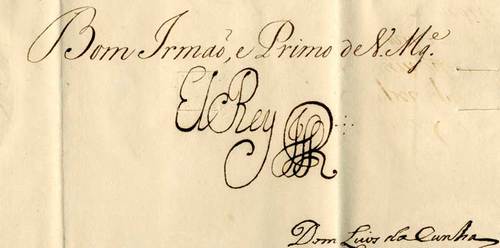 Bom Irmaõ, e Primo de V. Mg.ᵉ
El Rey
Dom Luis da Cunha